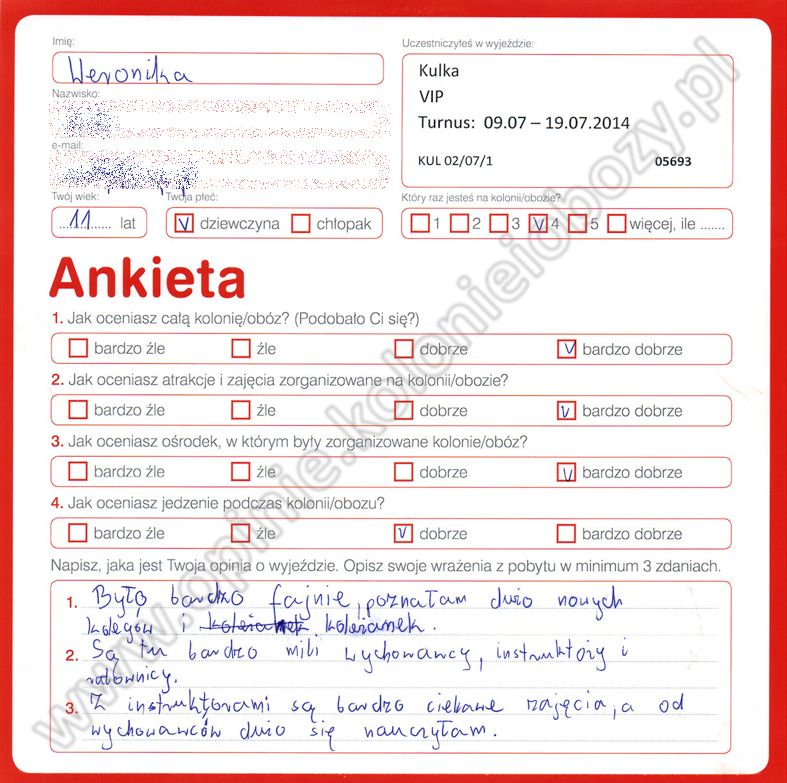 Imię:
Weronika
Nazwisko:
e-mail:
Twój wiek:
11 lat
Twoja płeć:
V dziewczyna chłopak
Uczestniczyłeś w wyjeździe:
Kulka
VIP
Turnus: 09.07 – 19.07.2014
KUL 02/07/1 05693
Który raz jesteś na kolonii/obozie?
1 2 3 V 4 5 więcej, ile .......
Ankieta
1. Jak oceniasz całą kolonię/obóz? (Podobało Ci się?)
bardzo źle źle dobrze V bardzo dobrze
2. Jak oceniasz atrakcje i zajęcia zorganizowane na kolonii/obozie?
bardzo źle źle dobrze V bardzo dobrze
3. Jak oceniasz ośrodek, w którym były zorganizowane kolonie/obóz?
bardzo źle źle dobrze V bardzo dobrze
4. Jak oceniasz jedzenie podczas kolonii/obozu?
bardzo źle źle V dobrze bardzo dobrze
Napisz, jaka jest Twoja opinia o wyjeździe. Opisz swoje wrażenia z pobytu w minimum 3 zdaniach.
1. Było bardzo fajnie, poznałam dużo nowych
kolegów i koleżanek.
2. Są tu bardzo mili wychowawcy, instruktorzy i
ratownicy.
3. Z instruktorami są bardzo ciekawe zajęcia, a od
wychowawców dużo się nauczyłam.
www.opinie.kolonieiobozy.pl